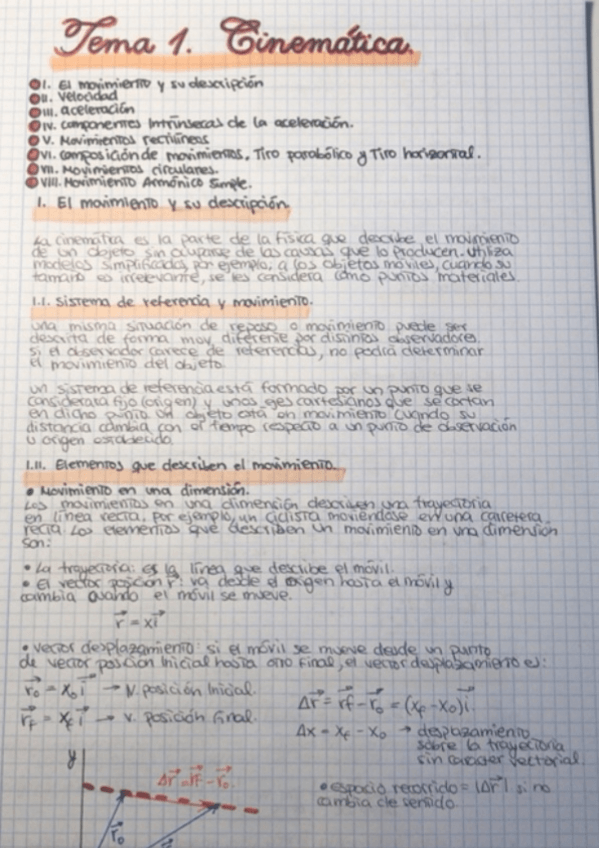 Tema 1. Cinemática.
I. El movimiento y su descripción
II. Velocidad
III. aceleración
IV. Componentes Intrínsecas de la aceleración.
V. Movimientos rectilíneos
VI. composición de movimientos. Tiro parabólico y Tiro horizontal.
VII. Movimientos circulares.
VIII. Movimiento Armónico Simple.
I. El movimiento y su descripción.
La cinemática es la parte de la física que describe el movimiento
de un objeto sin ocuparse de las causas que lo producen. Utiliza
modelos simplificados, por ejemplo, a los objetos móviles, cuando su
tamaño es irrelevante, se les considera como puntos materiales.
I.I. Sistema de referencia y movimiento.
una misma situación de reposo o movimiento puede ser
descrita de forma muy diferente por distintos observadores.
si el observador carece de referencias, no podrá determinar
el movimiento del objeto.
un sistema de referencia está formado por un punto que se
considerará fijo (origen) y unos ejes cartesianos que se cortan
en dicho punto. un objeto está en movimiento cuando su
distancia cambia con el tiempo respecto a un punto de observación
u origen establecido.
I.II. Elementos que describen el movimiento.
• Movimiento en una dimensión.
Los movimientos en una dimensión describen una trayectoria
en línea recta, por ejemplo, un ciclista moviéndose en una carretera
recta. Los elementos que describen un movimiento en una dimensión
son:
• La trayectoria: es la línea que describe el móvil.
• el vector posición r⃗: va desde el origen hasta el móvil y
cambia cuando el móvil se mueve.
r⃗ = xi⃗
• vector desplazamiento: si el móvil se mueve desde un punto
de vector posición inicial hasta otro final, el vector desplazamiento es:
r⃗₀ = x₀ i⃗ → v. posición inicial.
r⃗f = xf i⃗ → v. posición final.
Δr⃗ = r⃗f - r⃗₀ = (xf - x₀)i⃗.
Δx = xf - x₀ → desplazamiento
sobre la trayectoria
sin carácter vectorial.
y
Δr⃗ = r⃗f - r⃗₀.
r⃗₀
• espacio recorrido = |Δr⃗| si no
cambia de sentido.